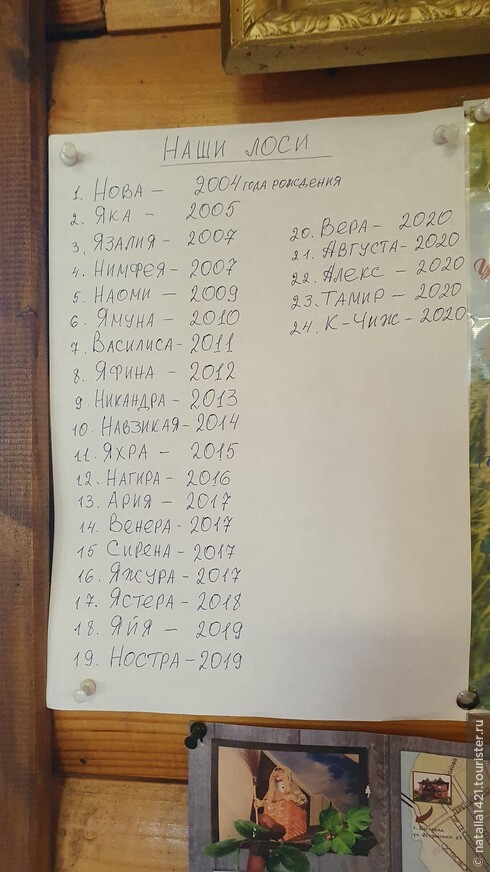 НАШИ ЛОСИ
1. НОВА – 2004 ГОДА РОЖДЕНИЯ
2. ЯКА – 2005
3. ЯЗАЛИЯ – 2007
4. НИМФЕЯ – 2007
5. НАОМИ – 2009
6. ЯМУНА – 2010
7. ВАСИЛИСА – 2011
8. ЯФИНА – 2012
9. НИКАНДРА – 2013
10. НАВЗИКАЯ – 2014
11. ЯХРА – 2015
12. НАГИРА – 2016
13. АРИЯ – 2017
14. ВЕНЕРА – 2017
15. СИРЕНА – 2017
16. ЯЖУРА – 2017
17. ЯСТЕРА – 2018
18. ЯЙЯ – 2019
19. НОСТРА – 2019
20. ВЕРА – 2020
21. АВГУСТА – 2020
22. АЛЕКС – 2020
23. ТАМИР – 2020
24. К-ЧИЖ – 2020
© natalia1421.tourister.ru